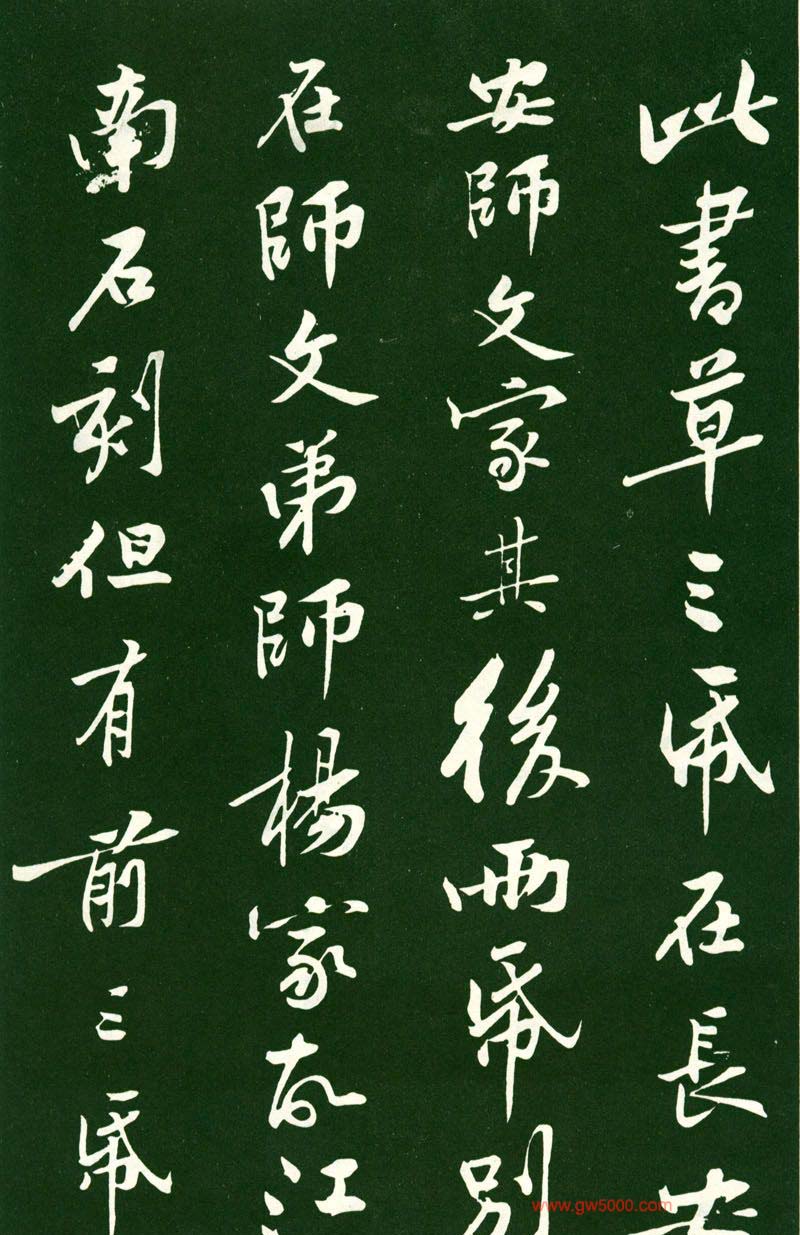 此書草三帋在長安
安師文家其後兩帋別
在師文弟師楊家故江
南石刻但有前三帋
www.gw5000.com